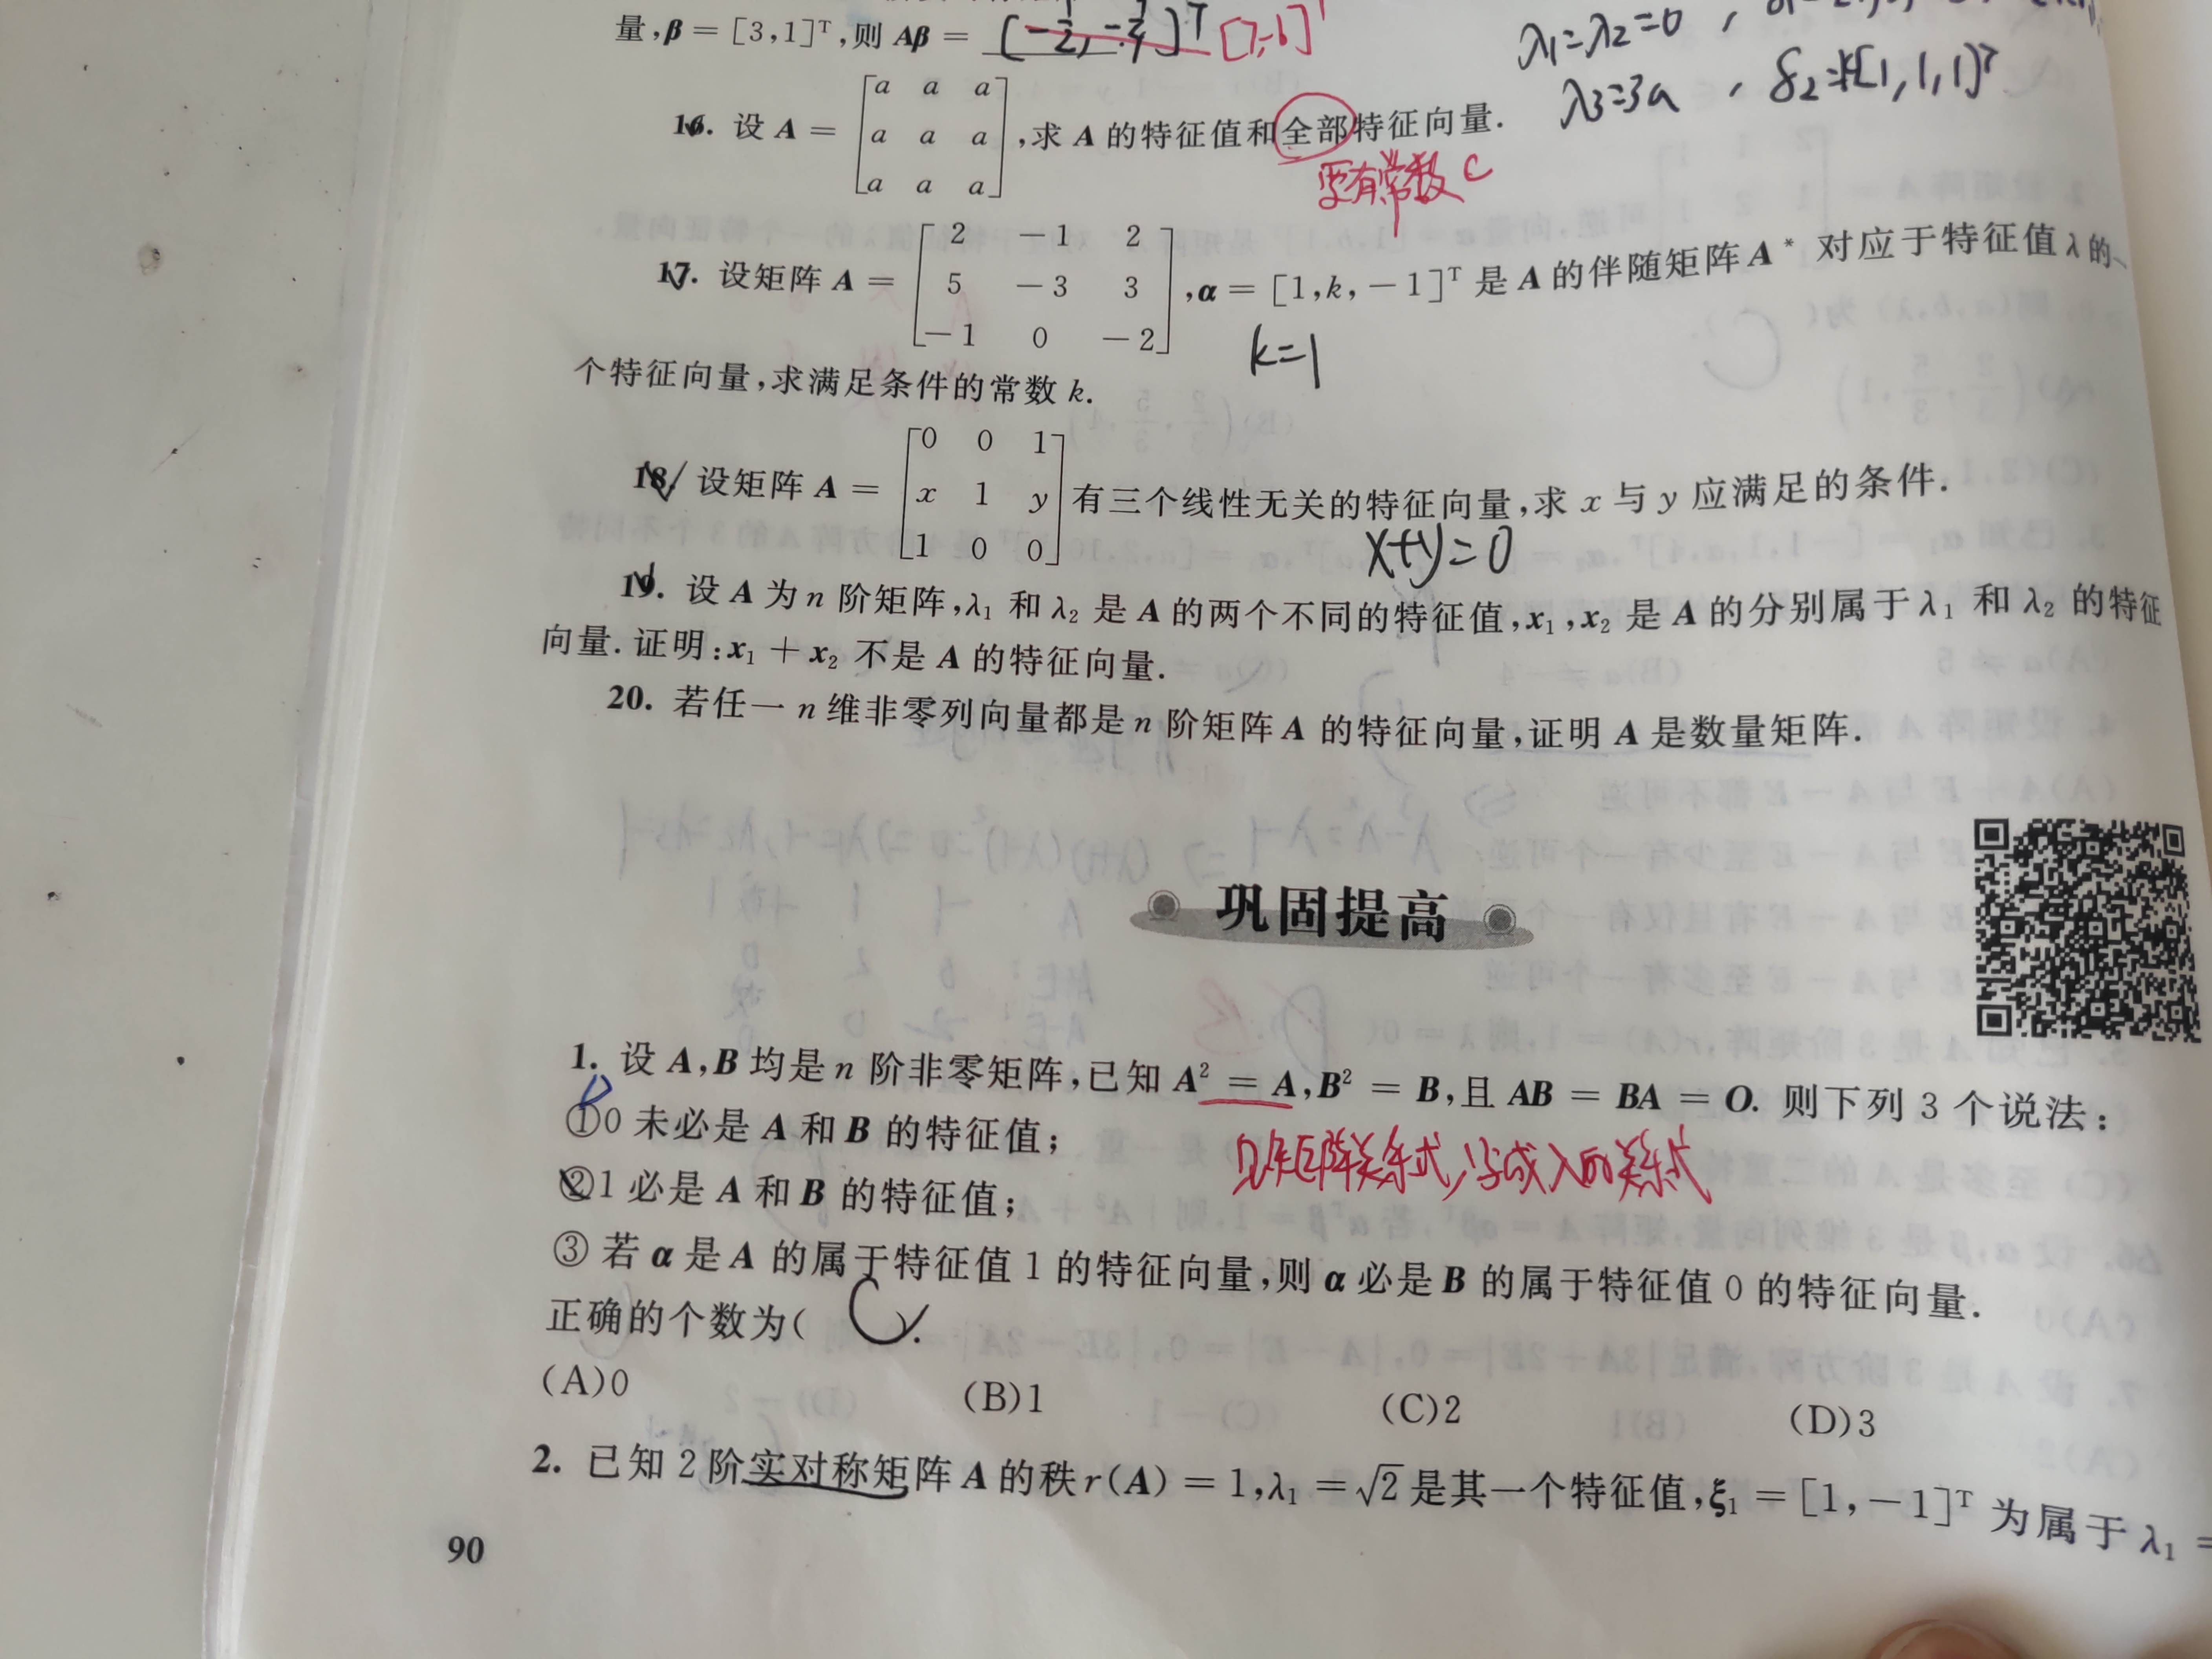 量,β = [3,1]ᵀ,则 Aβ = [7,-6]ᵀ
λ₁=λ₂=0
λ₃=3a , δ₂=k[1,1,1]ᵀ
16. 设 A = [a a a; a a a; a a a],求 A 的特征值和全部特征向量.
要有常数 C
17. 设矩阵 A = [2 −1 2; 5 −3 3; −1 0 −2],α = [1,k,−1]ᵀ 是 A 的伴随矩阵 A* 对应于特征值 λ 的
个特征向量,求满足条件的常数 k.
k=1
18. 设矩阵 A = [0 0 1; x 1 y; 1 0 0] 有三个线性无关的特征向量,求 x 与 y 应满足的条件.
x+y=0
19. 设 A 为 n 阶矩阵,λ₁ 和 λ₂ 是 A 的两个不同的特征值,x₁,x₂ 是 A 的分别属于 λ₁ 和 λ₂ 的特征
向量. 证明:x₁ + x₂ 不是 A 的特征向量.
20. 若任一 n 维非零列向量都是 n 阶矩阵 A 的特征向量,证明 A 是数量矩阵.
巩固提高
1. 设 A,B 均是 n 阶非零矩阵,已知 A² = A,B² = B,且 AB = BA = O. 则下列 3 个说法:
①0 未必是 A 和 B 的特征值;
见矩阵关系式,写成λ的关系式
②1 必是 A 和 B 的特征值;
③ 若 α 是 A 的属于特征值 1 的特征向量,则 α 必是 B 的属于特征值 0 的特征向量.
正确的个数为( C ).
(A)0 (B)1 (C)2 (D)3
2. 已知 2 阶实对称矩阵 A 的秩 r(A) = 1,λ₁ = √2 是其一个特征值,ξ₁ = [1,−1]ᵀ 为属于 λ₁ =
90